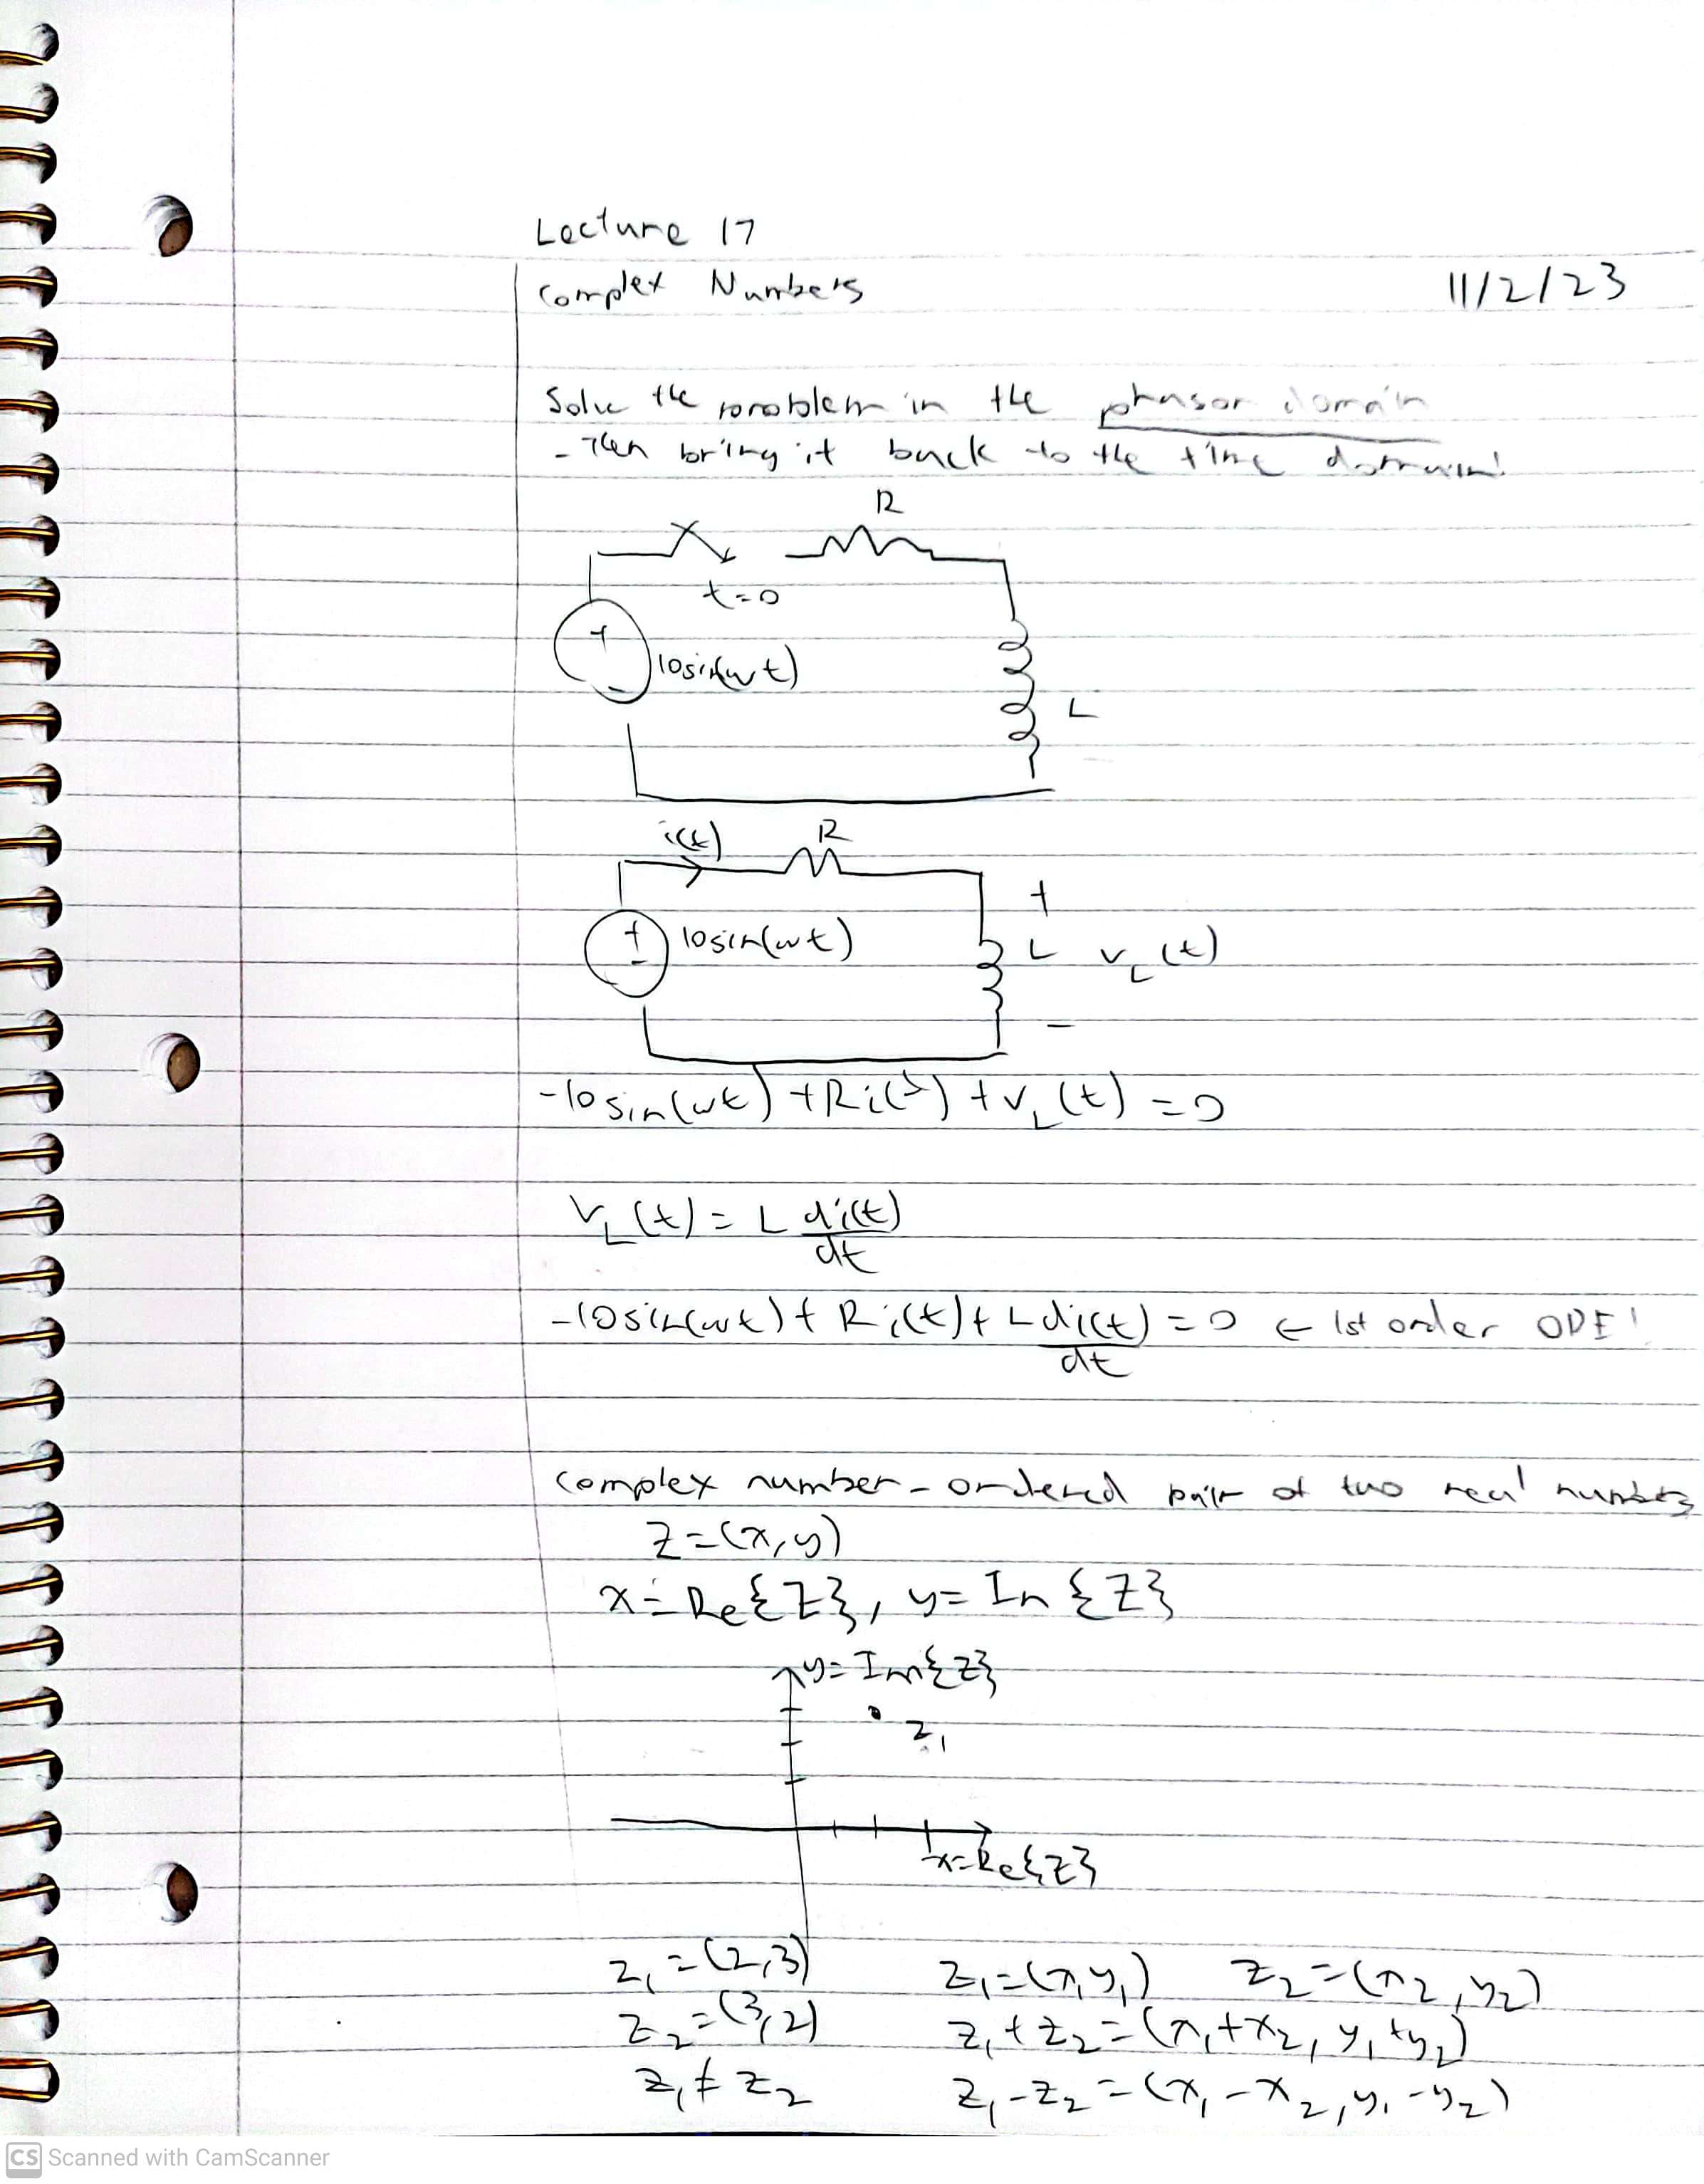 Lecture 17
Complex Numbers 11/2/23
Solve the problem in the phasor domain
- Then bring it back to the time domain!
R
t=0
+
10sin(ωt)
-
L
i(t) R
+
+ 10sin(ωt) L v_L(t)
-
-
-10sin(ωt) + Ri(t) + v_L(t) = 0
v_L(t) = L di(t)/dt
-10sin(ωt) + Ri(t) + L di(t)/dt = 0 ← 1st order ODE!
complex number - ordered pair of two real numbers
Z=(x,y)
x=Re{Z}, y=In{Z}
y=Im{Z}
z₁
x=Re{Z}
z₁=(2,3) z₁=(x,y₁) z₂=(x₂,y₂)
z₂=(3,2) z₁+z₂=(x₁+x₂, y₁+y₂)
z₁≠z₂ z₁-z₂=(x₁-x₂, y₁-y₂)
CS Scanned with CamScanner